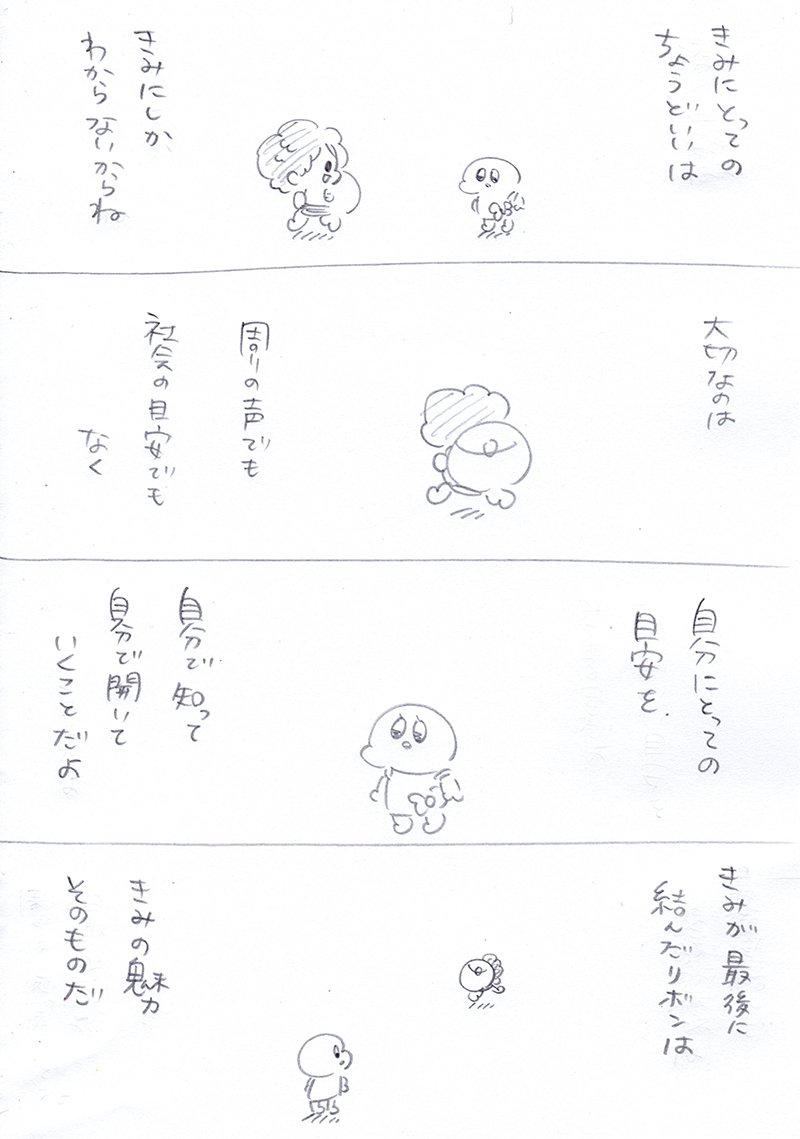 きみにとっての
ちょうどいいは
きみにしか
わからないからね
大切なのは
周りの声でも
社会の目安でも
なく
自分にとっての
目安を
自分で知って
自分で開いて
いくことだよ。
きみが最後に
結んだリボンは
きみの魅力
そのものだ